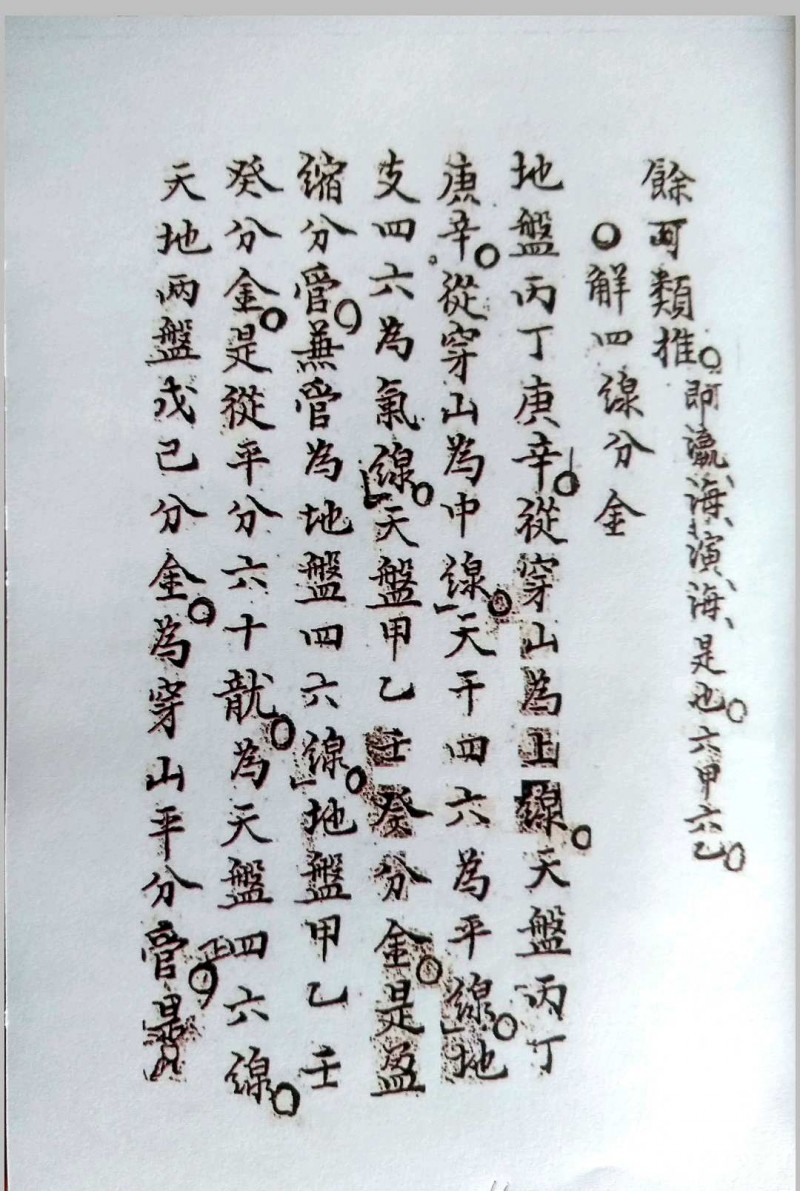 餘可類推。即瀛海、演海、是也。六甲六乙。
○解四線分金
地盤丙丁庚辛。從穿山為上線。天盤丙丁
庚辛。從穿山為中線。天干四六為平線。地
支四六為氣線。天盤甲乙壬癸分金。是盈
縮分管。兼管為地盤四六線。地盤甲乙壬
癸分金。是從平分六十龍。為天盤四六線。
天地兩盤戊己分金。為穿山平分管。是